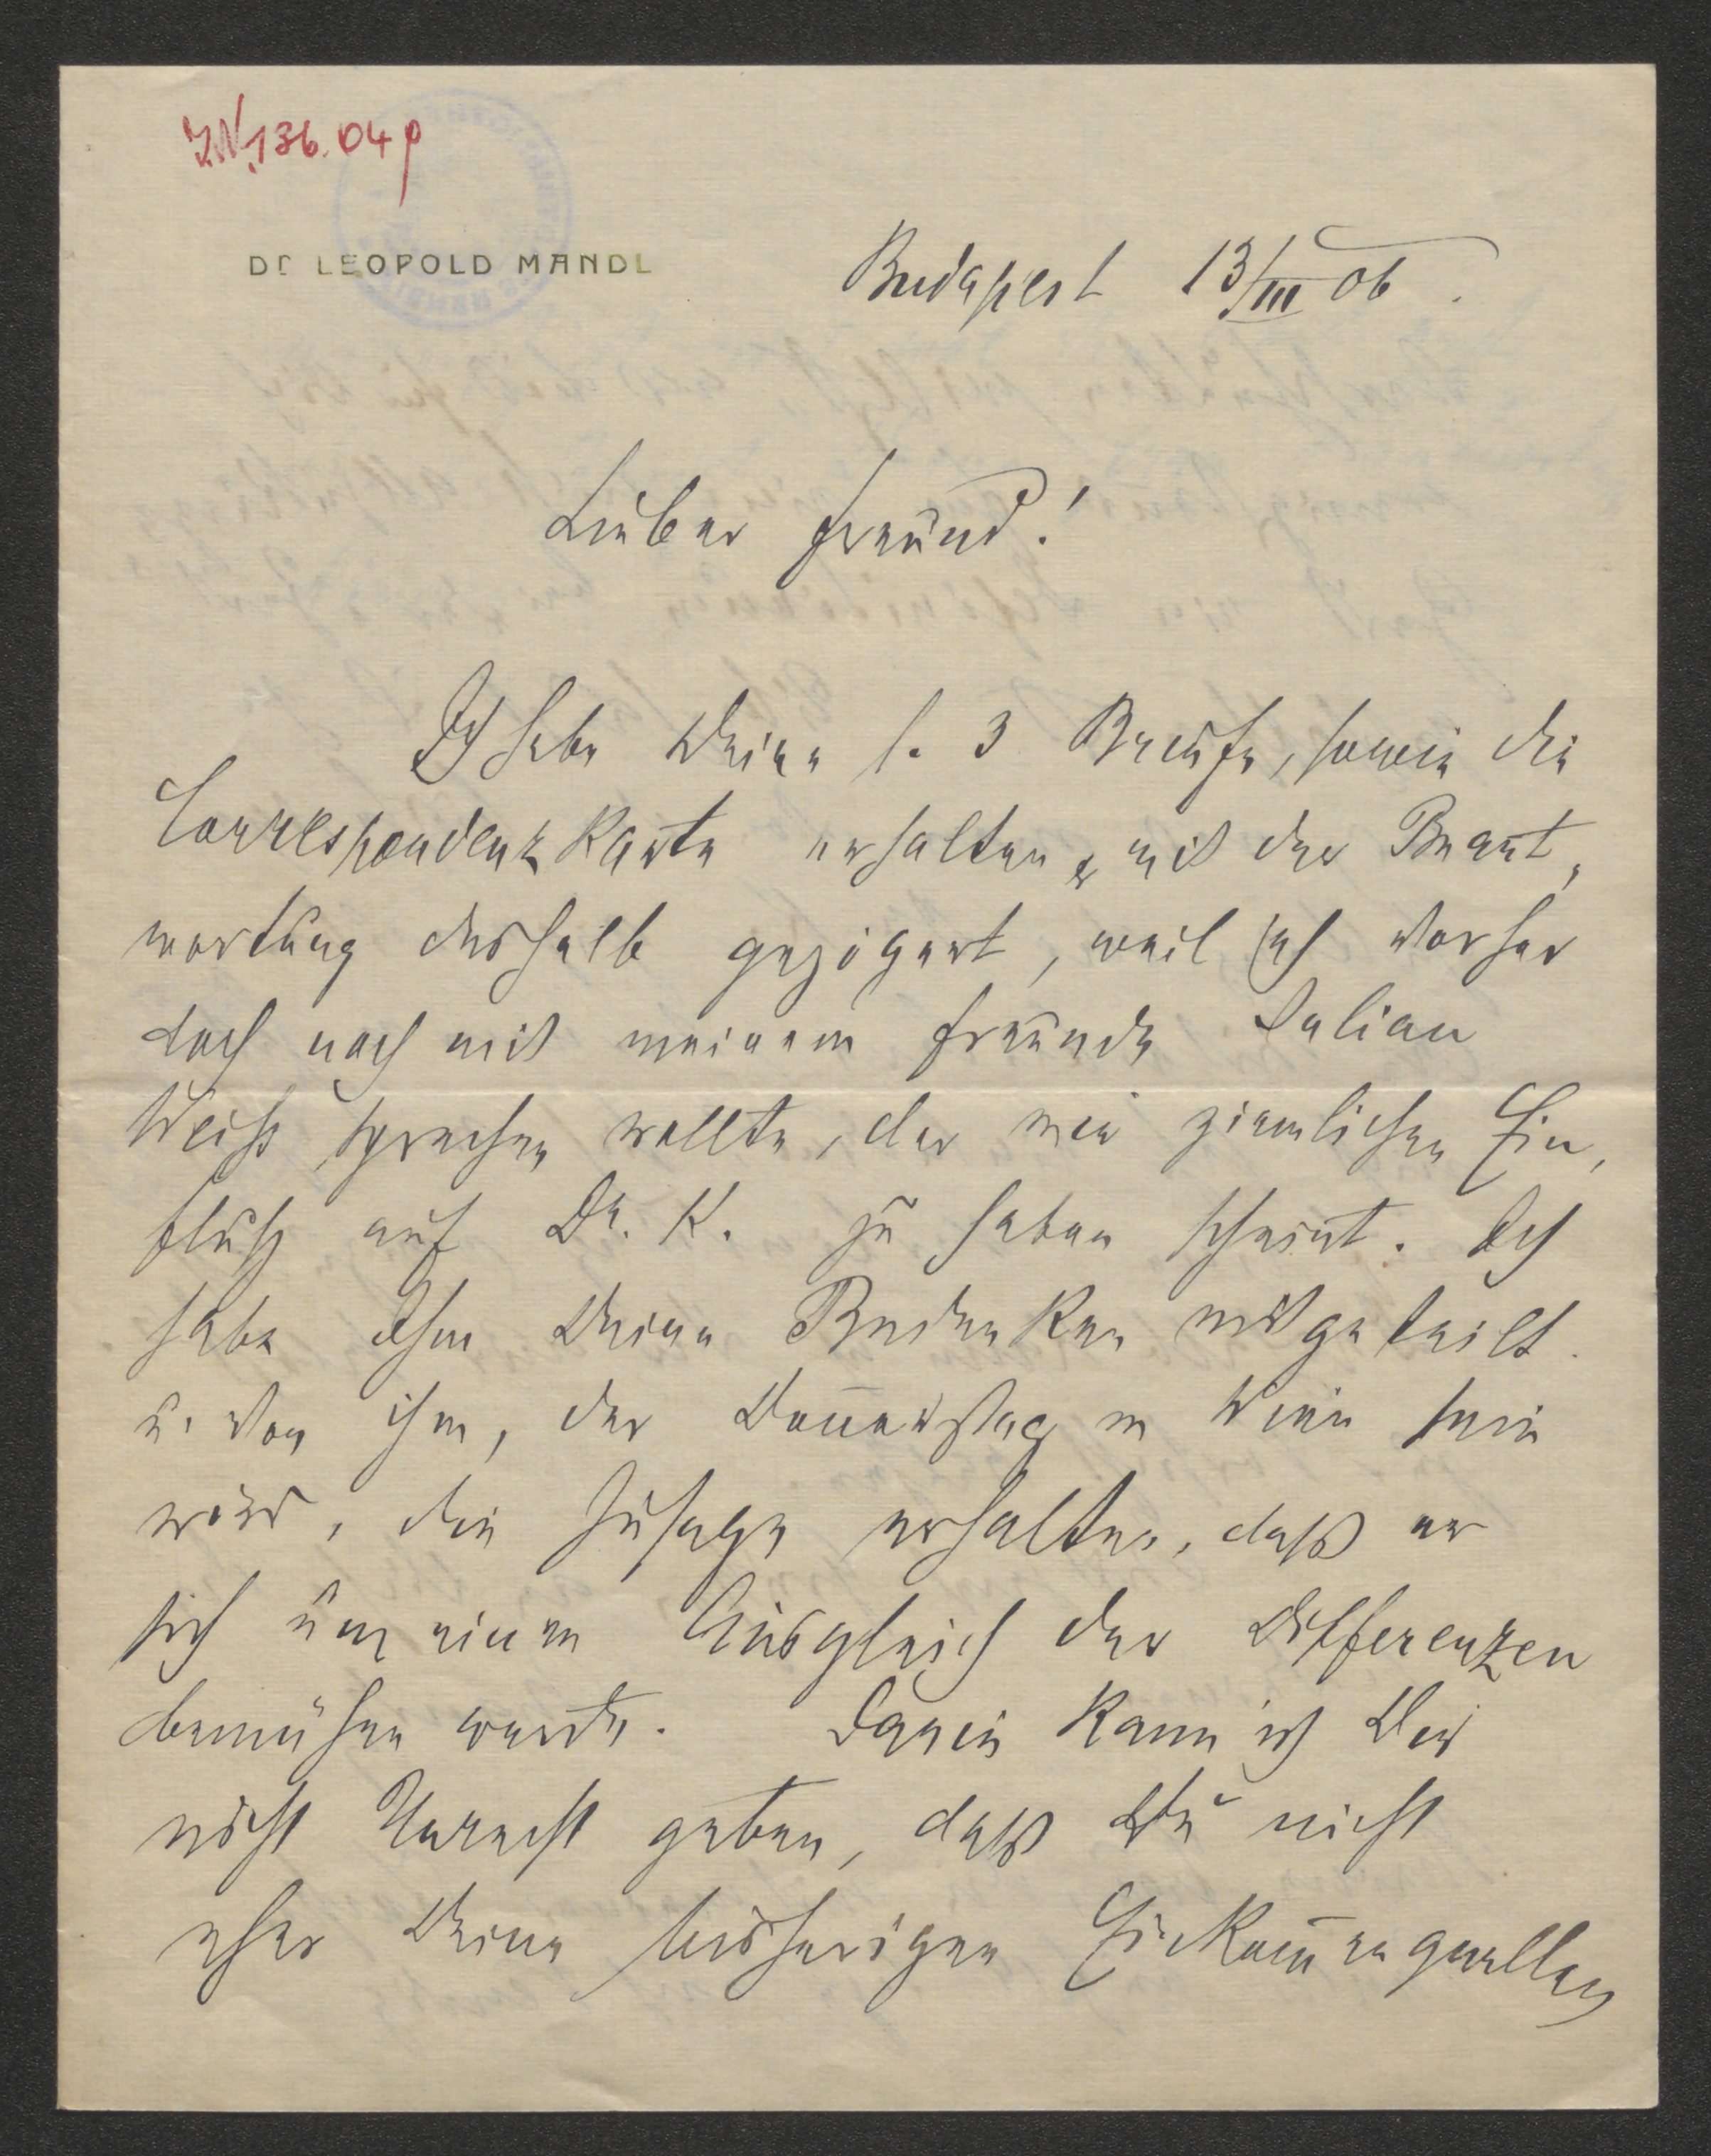 IN. 136.049
DR LEOPOLD MANDL
Budapest 13/III 06.
Lieber Freund!
Ich habe Deine l. 3 Briefe, sowie die
Correspondenzkarte erhalten & mit der Beant-
wortung deshalb gezögert, weil ich vorher
doch noch mit meinem Freunde Julian
Weiß sprechen wollte, der mir ziemlichen Ein-
fluß auf Dr. K. zu haben scheint. Ich
habe ihm Deine Bedenken mitgeteilt
u. von ihm, der Donnerstag in Wien sein
wird, die Zusage erhalten, daß er
sich um einen Ausgleich der Differenzen
bemühen werde. Darin kann ich Dir
nicht Unrecht geben, daß Du nicht
eher Deine bisherigen Einkommenquellen